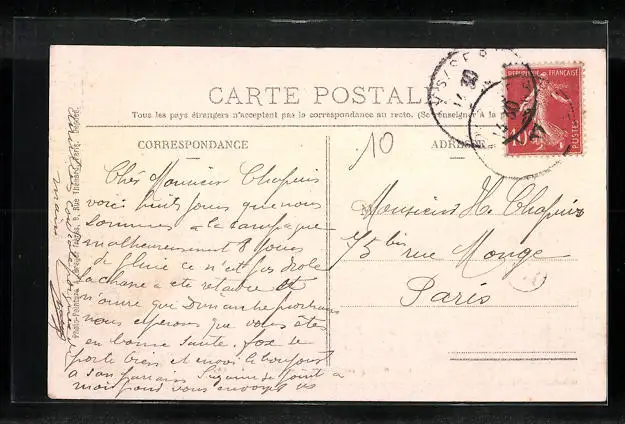 CARTE POSTALE
Tous les pays étrangers n'acceptent pas la correspondance au recto. (Se renseigner à la
CORRESPONDANCE
ADRESSE
10
RÉPUBLIQUE FRANÇAISE
10
POSTES
Cher Monsieur Chapuis
voici huit jours que nous
sommes à la campagne
malheureusement 8 jours
de pluie ce n'est pas drole
la chasse a été retardée et
n'ouvre qui Dimanche prochain
nous esperons que vous êtes
en bonne santé. se
porte bien et envoi le bonjour
à son Suzanne se joint a
moi pour vous envoyer
Monsieur H. Chapuis
75 bis rue Monge
Paris